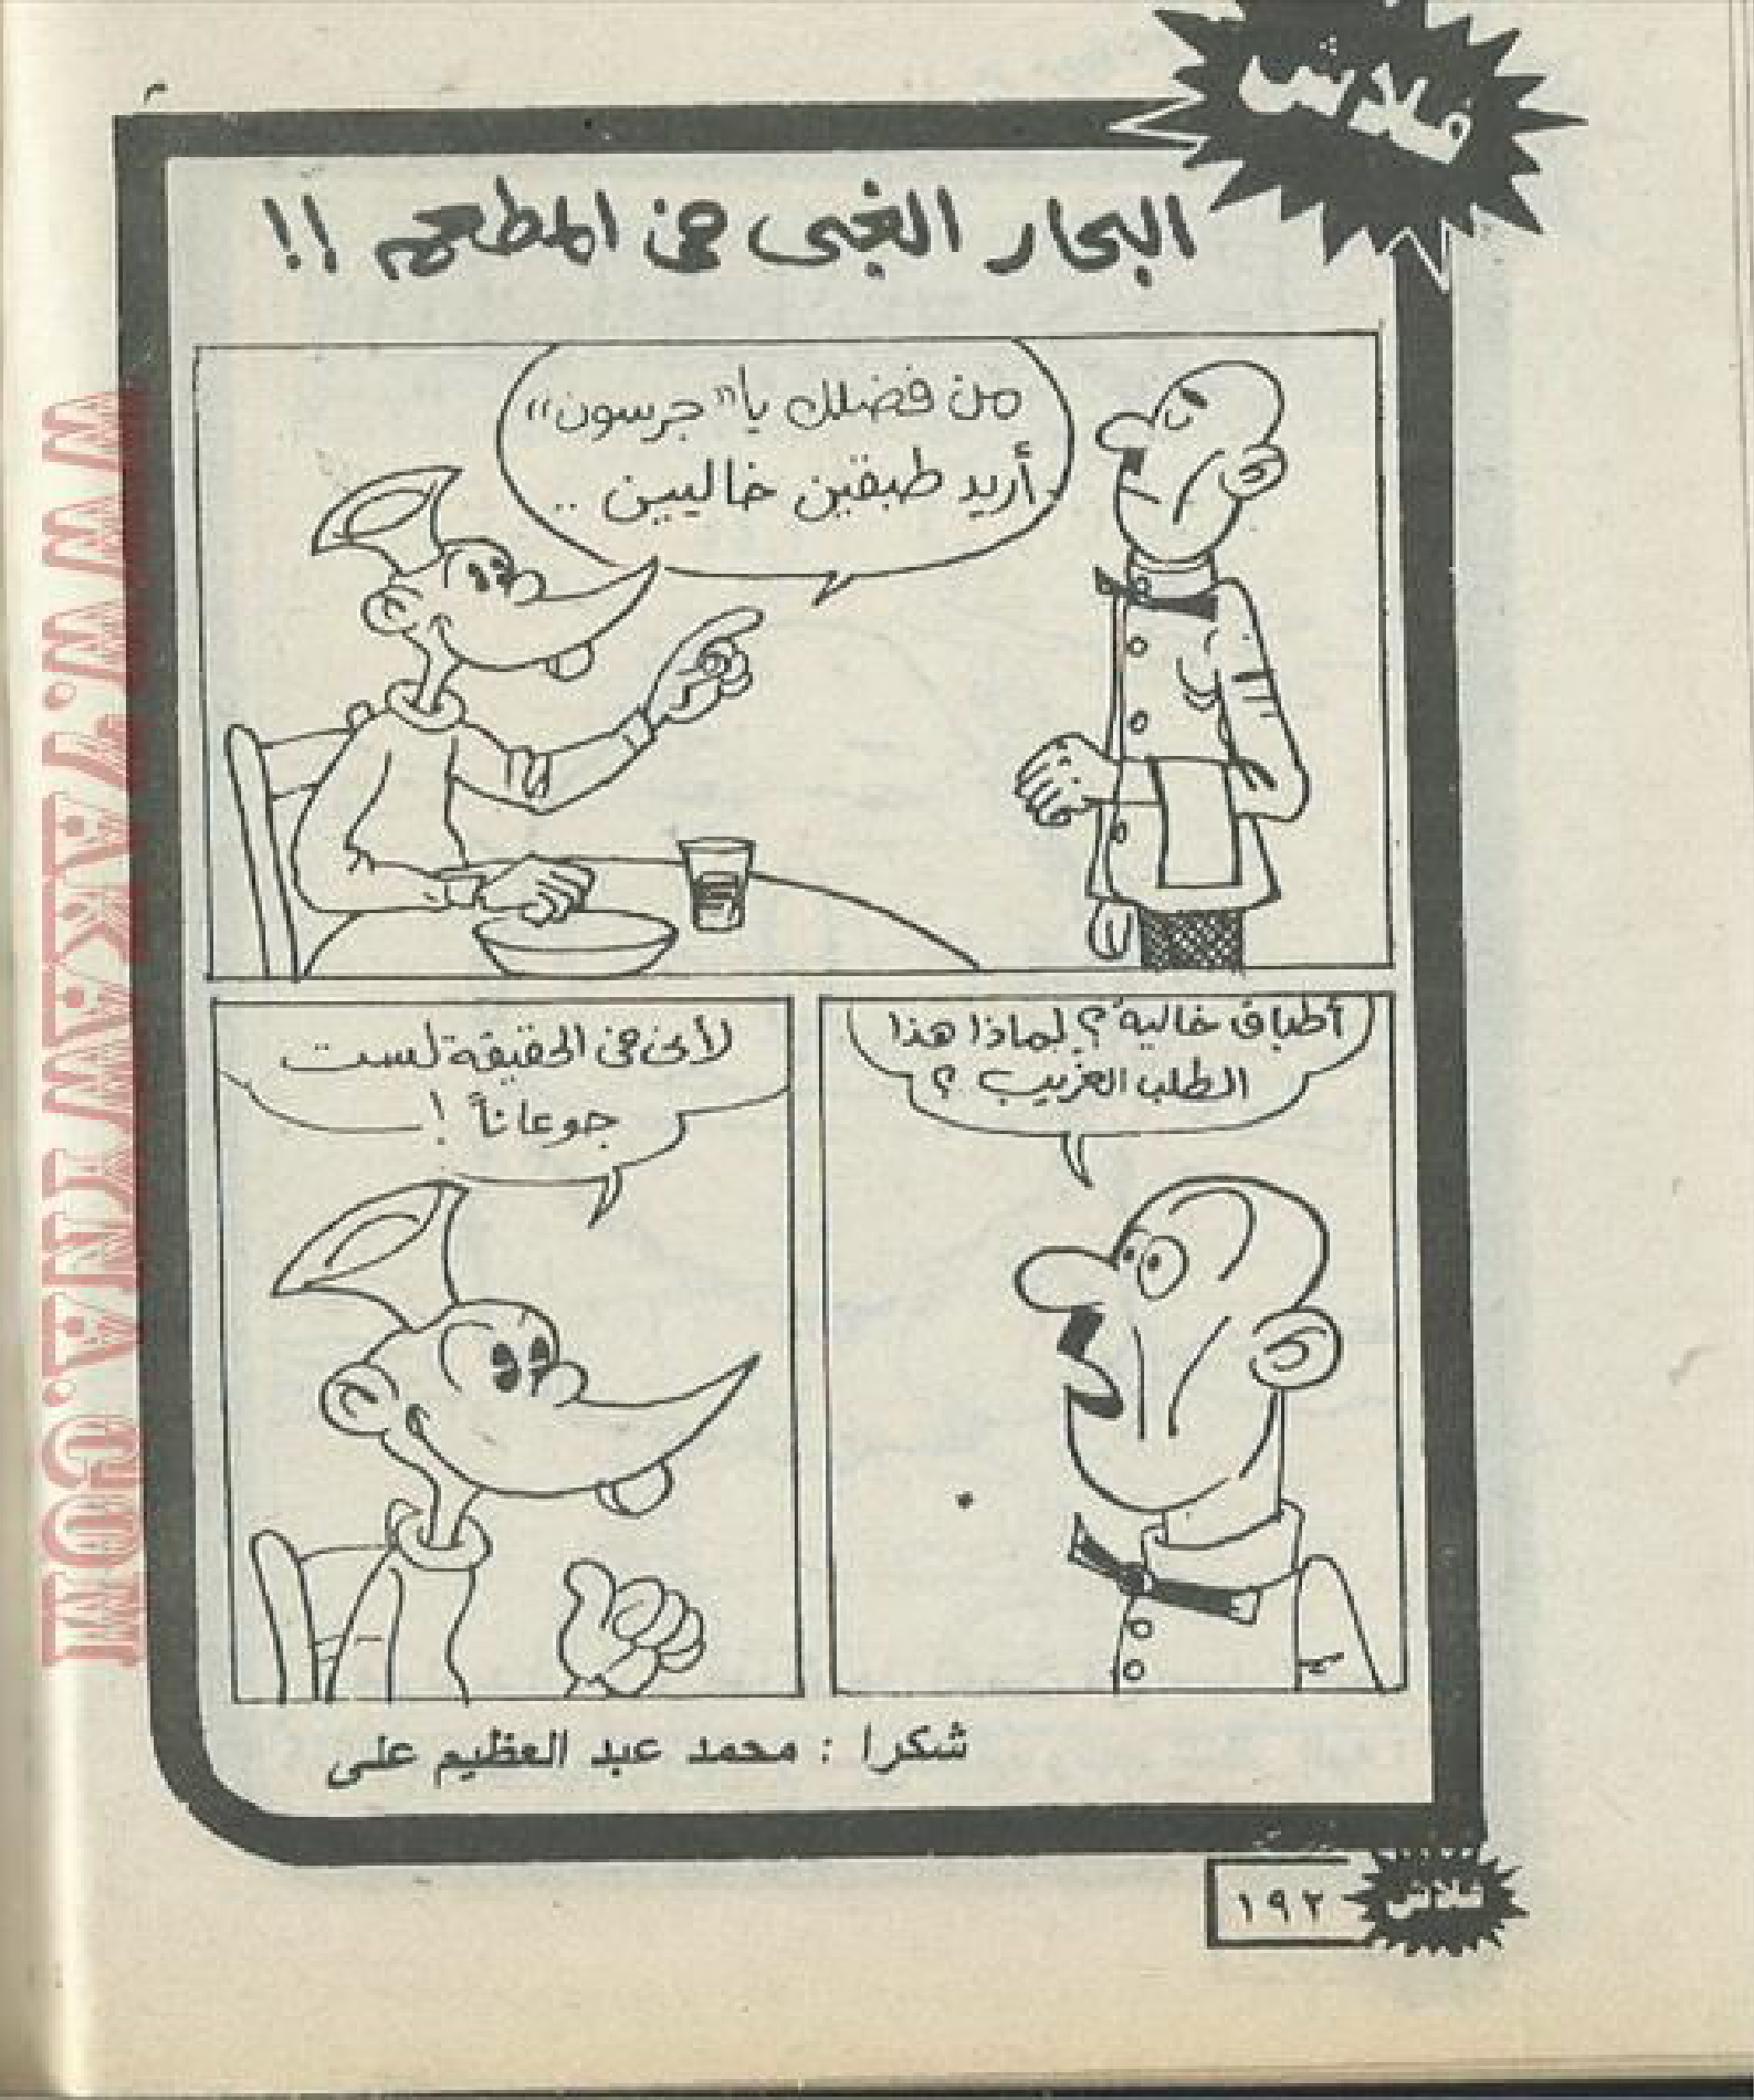 فلاش
البحار الغبى فى المطعم !!
من فضلك يا "جرسون"
أريد طبقين خاليين ..
أطباق خالية ؟ لماذا هذا
الطلب الغريب ؟
لأنى فى الحقيقة لست
جوعاناً !
شكرا : محمد عبد العظيم على
فلاش
١٩٢
WWW.DVD4ARAB.COM